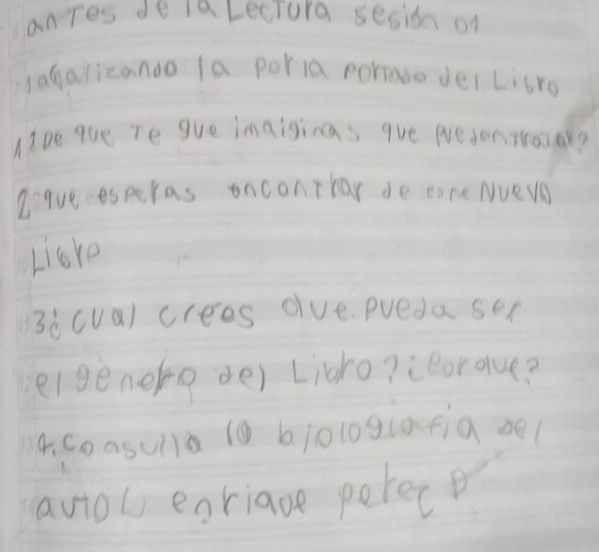 antes de la Lectura sesión 01
analizando la por la portada del Libro
1 ¿De que Te que imaiginas que
2 ¿que esperas encontrar de este Nuevo
Libro
3¿ cual crees que pueda ser
el género del Libro? ¿Porque?
4. Consulta la biologrofia del
autor enrique perez D